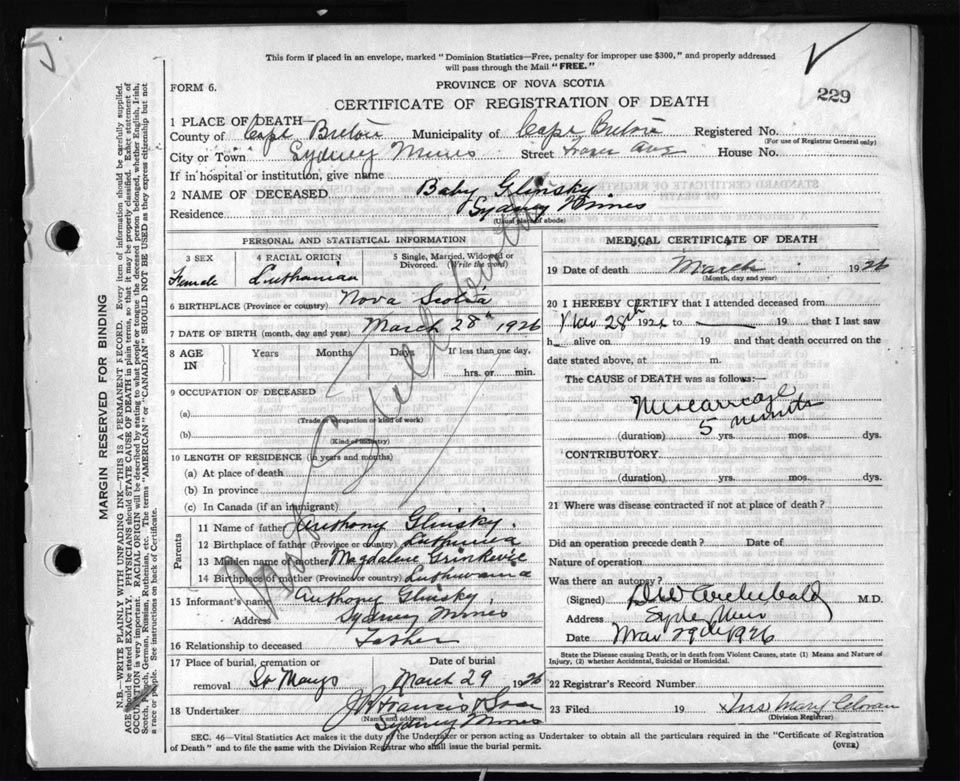 This form if placed in an envelope, marked "Dominion Statistics—Free, penalty for improper use $300," and properly addressed
will pass through the Mail "FREE."
FORM 6.
PROVINCE OF NOVA SCOTIA
CERTIFICATE OF REGISTRATION OF DEATH
229
1 PLACE OF DEATH—
County of Cape Breton Municipality of Cape Breton Registered No.
(For use of Registrar General only)
City or Town Sydney Mines Street Fraser Ave House No.
If in hospital or institution, give name
2 NAME OF DECEASED Baby Glinsky
Residence Sydney Mines
(Usual place of abode)
PERSONAL AND STATISTICAL INFORMATION
3 SEX
Female
4 RACIAL ORIGIN
5 Single, Married, Widowed or
Divorced. (Write the word)
6 BIRTHPLACE (Province or country) Nova Scotia
7 DATE OF BIRTH (month, day and year) March 28th 1926
8 AGE
IN
Years Months Days If less than one day,
hrs. or min.
9 OCCUPATION OF DECEASED
(a)
(Trade or occupation or kind of work)
(b)
(Kind of industry)
10 LENGTH OF RESIDENCE (in years and months)
(a) At place of death
(b) In province
(c) In Canada (if an immigrant)
Parents
11 Name of father Anthony Glinsky.
12 Birthplace of father (Province or country)
13 Maiden name of mother Magdalene
14 Birthplace of mother (Province or country)
15 Informant's name Anthony Glinsky
Address Sydney Mines
16 Relationship to deceased Father
17 Place of burial, cremation or
removal St Marys
Date of burial
March 29 1926
18 Undertaker J R Francis & Son
(Name and address)
Sydney Mines
MEDICAL CERTIFICATE OF DEATH
19 Date of death March 1926
(Month, day and year)
20 I HEREBY CERTIFY that I attended deceased from
28th 192 to 19 that I last saw
h alive on 19 and that death occurred on the
date stated above, at m.
The CAUSE OF DEATH was as follows:—
Miscarriage
5 minutes
(duration) yrs. mos. dys.
CONTRIBUTORY
(duration) yrs. mos. dys.
21 Where was disease contracted if not at place of death?
Did an operation precede death? Date of
Nature of operation
Was there an autopsy?
(Signed) Archibald M.D.
Address Syd Mines
Date Mar 29th 1926
State the Disease causing Death, or in death from Violent Causes, state (1) Means and Nature of
Injury, (2) whether Accidental, Suicidal or Homicidal.
22 Registrar's Record Number
23 Filed 19 Mrs Mary
(Division Registrar)
SEC. 46—Vital Statistics Act makes it the duty of the Undertaker or person acting as Undertaker to obtain all the particulars required in the "Certificate of Registration
of Death" and to file the same with the Division Registrar who shall issue the burial permit.
(OVER)
MARGIN RESERVED FOR BINDING
N.B.—WRITE PLAINLY WITH UNFADING INK—THIS IS A PERMANENT RECORD. Every item of information should be carefully supplied.
AGE should be stated EXACTLY. PHYSICIANS should STATE CAUSE OF DEATH in plain terms, so that it may be properly classified. Exact statement of
OCCUPATION is very important. RACIAL ORIGIN will be described by stating to what people or tongue the deceased person belonged, whether English, Irish,
Scotch, French, German, Russian, Ruthenian, etc. The terms "AMERICAN" or "CANADIAN" SHOULD NOT BE USED as they express citizenship but not
a race or people. See instructions on back of Certificate.